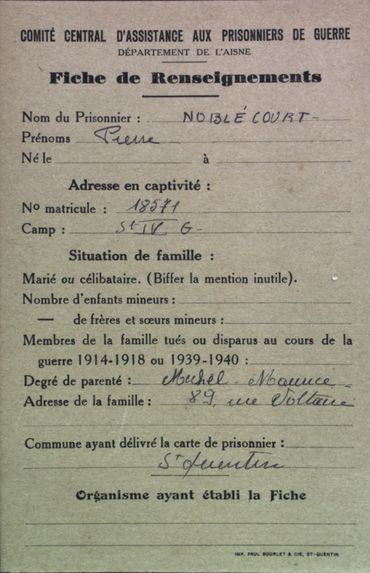 COMITÉ CENTRAL D'ASSISTANCE AUX PRISONNIERS DE GUERRE
DÉPARTEMENT DE L'AISNE
Fiche de Renseignements
Nom du Prisonnier : NOBLÉCOURT-
Prénoms Pierre
Né le à
Adresse en captivité :
No matricule : 18571
Camp : St IV G-
Situation de famille :
Marié ou célibataire. (Biffer la mention inutile).
Nombre d'enfants mineurs :
— de frères et sœurs mineurs :
Membres de la famille tués ou disparus au cours de la
guerre 1914-1918 ou 1939-1940 :
Degré de parenté : Michel - Maurice -
Adresse de la famille : 89, rue Voltaire
Commune ayant délivré la carte de prisonnier :
St Quentin
Organisme ayant établi la Fiche
IMP. PAUL BOURLET & CIE, ST-QUENTIN